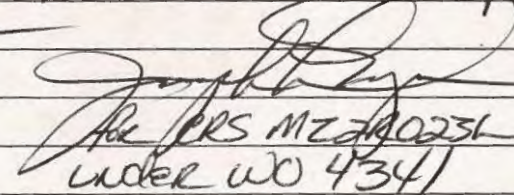 for CRS MZZR023L
UNDER WO 4341